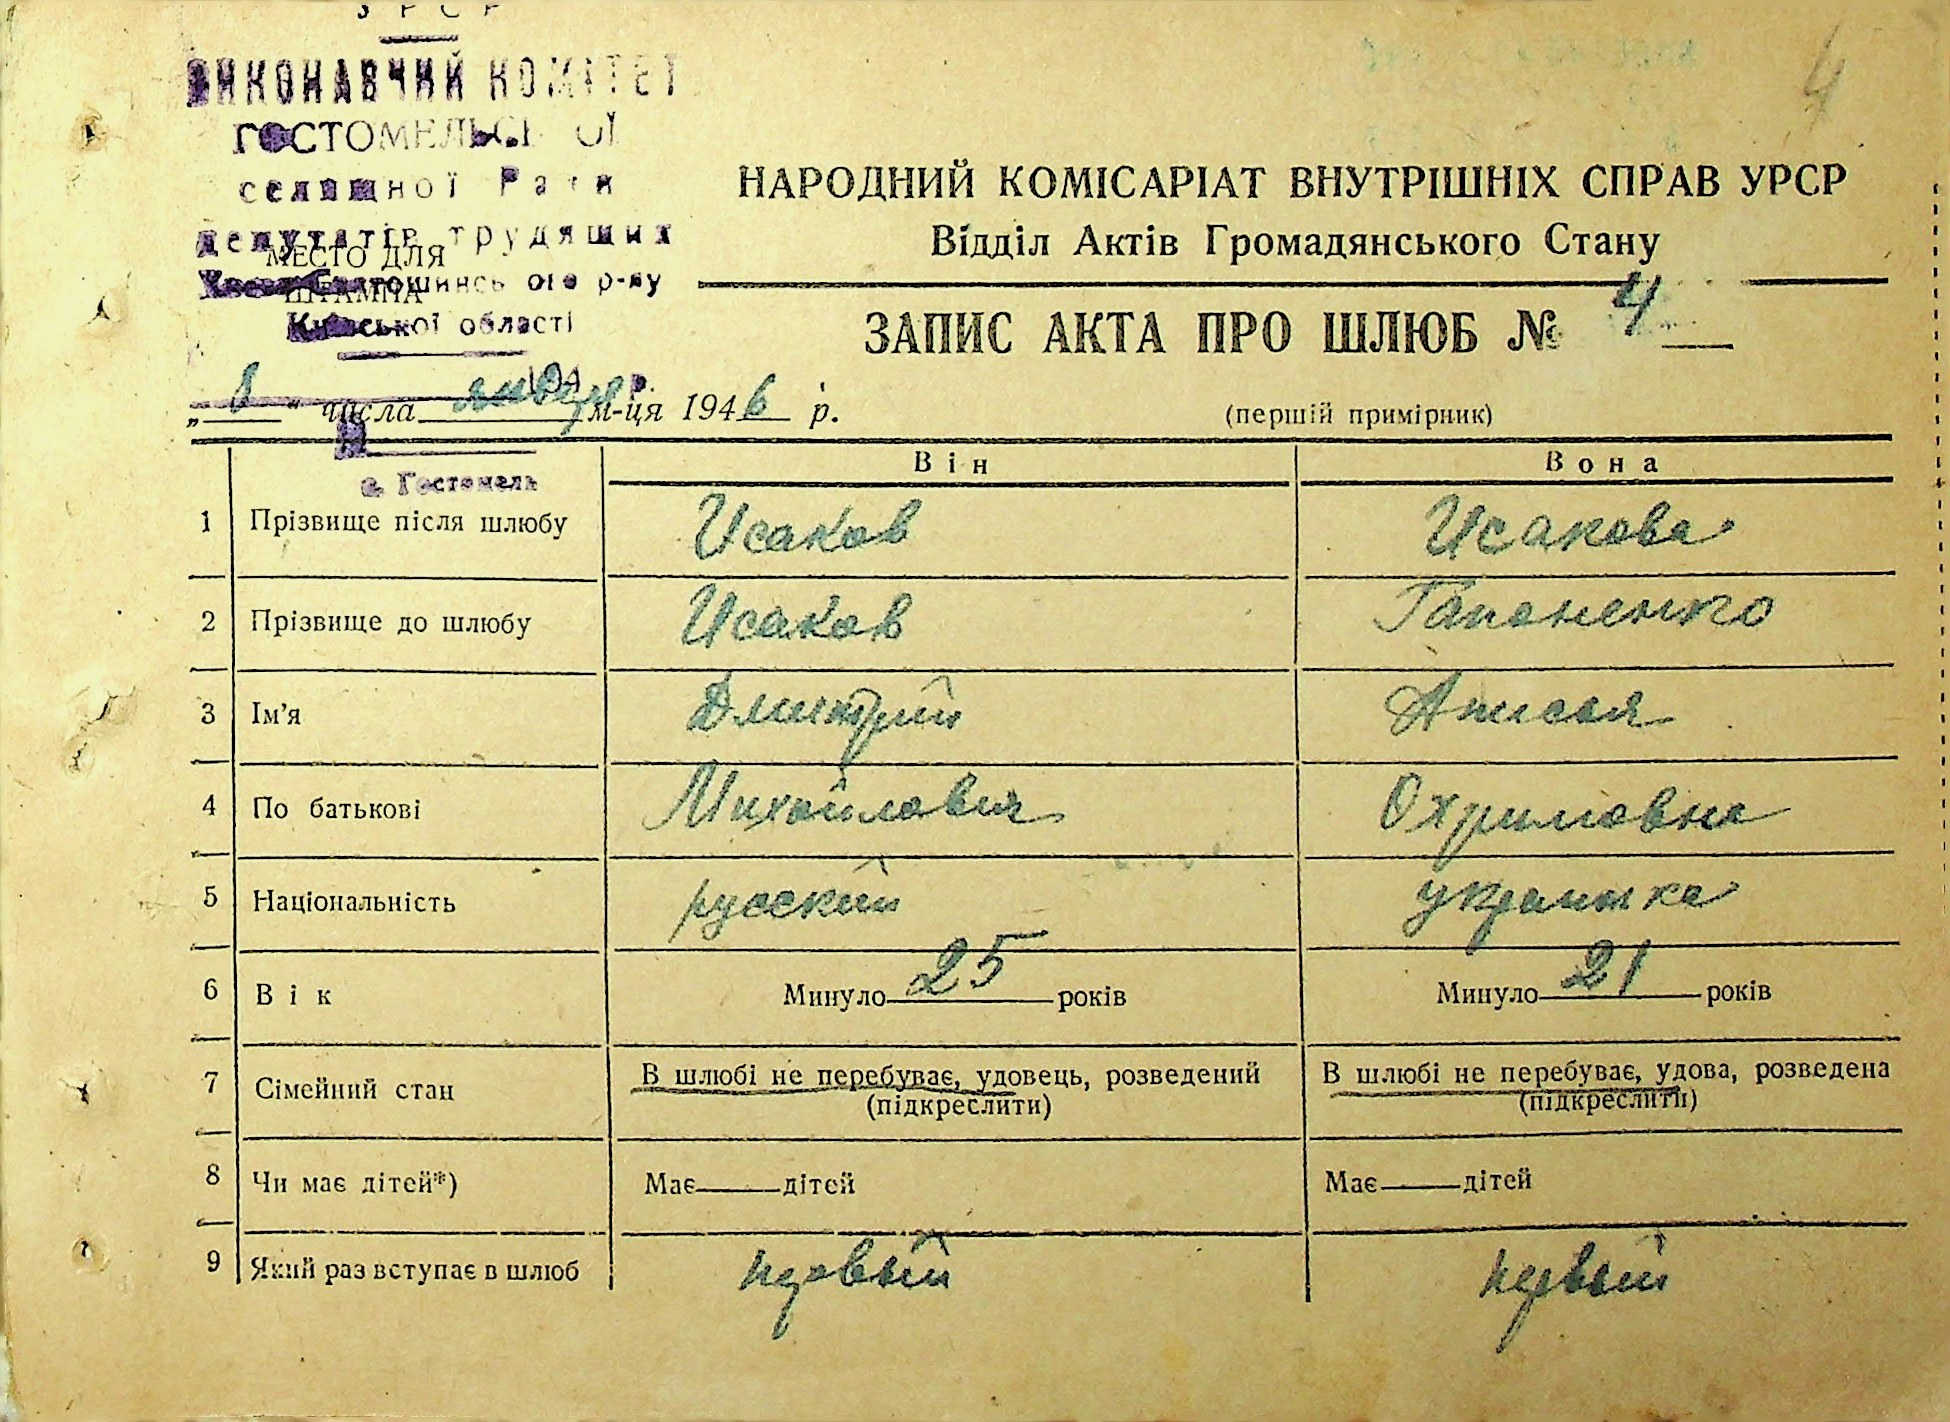 УРСР
ВИКОНАВЧИЙ КОМІТЕТ
ГОСТОМЕЛЬСЬКОЇ
селищної Ради
депутатів трудящих
МЕСТО ДЛЯ
ШТАМПА
р-ну
Київської області
194 р.
с. Гостомель
4
НАРОДНИЙ КОМІСАРІАТ ВНУТРІШНІХ СПРАВ УРСР
Відділ Актів Громадянського Стану
ЗАПИС АКТА ПРО ШЛЮБ № 4
„8“ числа января м-ця 1946 р.
(першій примірник)
Він Вона
1 Прізвище після шлюбу Исаков Исакова
2 Прізвище до шлюбу Исаков Гапоненко
3 Ім’я Дмитрий Анисья
4 По батькові Михайлович Охримовна
5 Національність русский украинка
6 Вік Минуло 25 років Минуло 21 років
7 Сімейний стан В шлюбі не перебуває, удовець, розведений В шлюбі не перебуває, удова, розведена
(підкреслити) (підкреслити)
8 Чи має дітей*) Має — дітей Має — дітей
9 Який раз вступає в шлюб первый первый